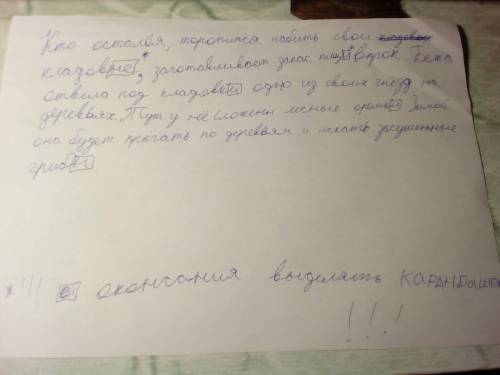 Кто остался, торопится набить свои
кладовые*, заготавливает запас пищи* впрок. Белка
отвела под кладовки одно из своих гнёзд на
деревьях. Тут у неё сложены лесные орешки. Зимой
она будет прыгать по деревьям и искать засушенные
грибы.
*!!! окончания выделять КАРАНДАШОМ
!!!